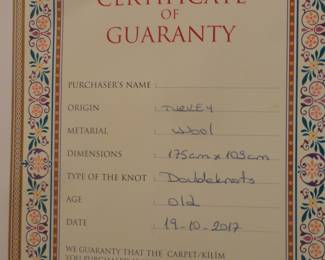 CERTIFICATE
OF
GUARANTY
PURCHASER'S NAME :
ORIGIN : TURKEY
METARIAL : Wool
DIMENSIONS : 175cm x 109cm
TYPE OF THE KNOT : Doubleknots
AGE : old
DATE : 19-10-2017
WE GUARANTY THAT THE CARPET/KİLİM
YOU PURCHASED